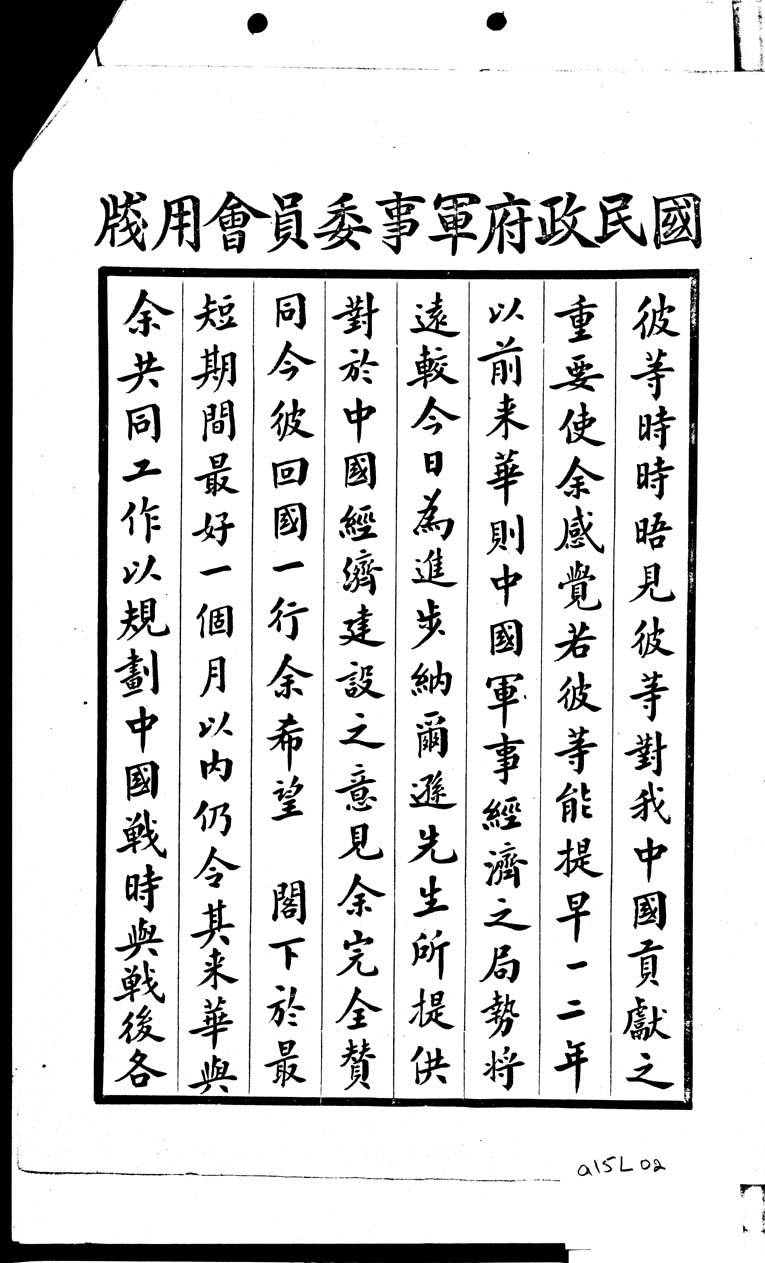 國民政府軍事委員會用牋
彼等時時晤見彼等對我中國貢獻之
重要使余感覺若彼等能提早一二年
以前来華則中國軍事經濟之局勢将
遠較今日為進步納爾遜先生所提供
對於中國經濟建設之意見余完全贊
同今彼回國一行余希望　閣下於最
短期間最好一個月以内仍令其来華與
余共同工作以規劃中國戰時與戰後各
a15L02